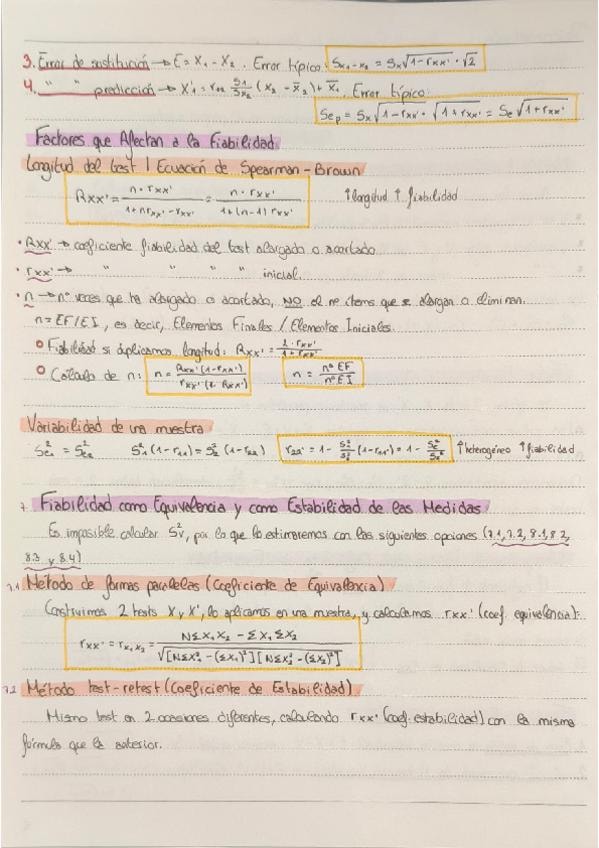 3. Error de sustitución → E = X₁ - X₂. Error típico: Sx₁-x₂ = Sx√(1-rxx') · √2
4. " " predicción → X'₁ = r₁₂ S₁/Sx₂ (x₂ - x̄₂) + x̄₁. Error típico:
Sep = Sx√(1-rxx') · √(1+rxx') = Se√(1+rxx')
Factores que Afectan a la Fiabilidad
Longitud del test | Ecuación de Spearman-Brown
Rxx' = n · rxx' / (1+nrxx' - rxx') = n · rxx' / (1+(n-1) rxx') ↑longitud ↑ fiabilidad
• Rxx' → coeficiente fiabilidad del test alargado o acortado
• rxx' → " " " " inicial.
• n → nº veces que ha alargado o acortado, NO el nº ítems que se alargan o eliminan.
n = EF/EI, es decir, Elementos Finales / Elementos Iniciales.
○ Fiabilidad si duplicamos longitud: Rxx' = 2 · rxx' / 1 + rxx'
○ Cálculo de n: n = Rxx' (1-rxx') / rxx' (1-Rxx') n = nº EF / nº EI
Variabilidad de una muestra
S²e₁ = S²e₂ S²₁ (1-r₁₁) = S²₂ (1-r₂₂) r₂₂' = 1 - S²₁/S²₂ (1-r₁₁') = 1 - S²e/S²x ↑heterogéneo ↑fiabilidad
7. Fiabilidad como Equivalencia y como Estabilidad de las Medidas
Es imposible calcular S²v, por lo que lo estimaremos con las siguientes opciones (7.1, 7.2, 8.1, 8.2,
8.3 y 8.4)
7.1 Método de formas paralelas (Coeficiente de Equivalencia)
Construimos 2 tests X y X', lo aplicamos en una muestra, y calculamos rxx' (coef. equivalencia):
rxx' = rx₁x₂ = NΣX₁X₂ - ΣX₁ΣX₂ / √([NΣX²₁ - (ΣX₁)²] [NΣX²₂ - (ΣX₂)²])
7.2 Método test-retest (Coeficiente de Estabilidad)
Mismo test en 2 ocasiones diferentes, calculando rxx' (coef. estabilidad) con la misma
fórmula que la anterior.